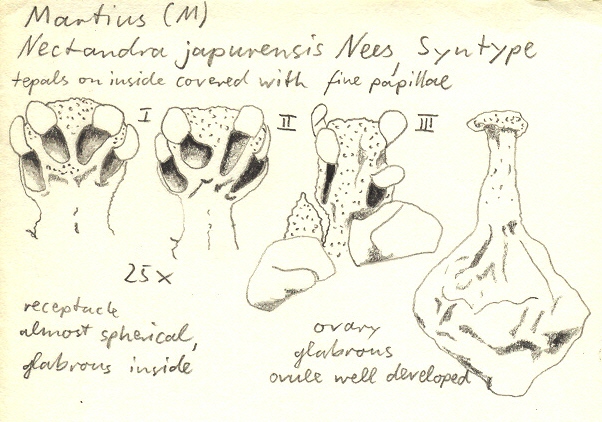 Martius (M)
Nectandra japurensis Nees, Syntype
tepals on inside covered with fine papillae
I
II
III
25 x
receptacle
almost spherical,
glabrous inside
ovary
glabrous
ovule well developed